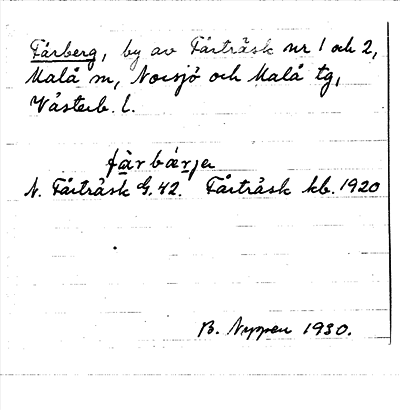 Fårberg, by av Fårträsk nr 1 och 2,
Malå sn, Norsjö och Malå tg,
Västerb. l.
fàrbárjer
N. Fårträsk G. 42. Fårträsk kb. 1920
B. Nyman 1930.